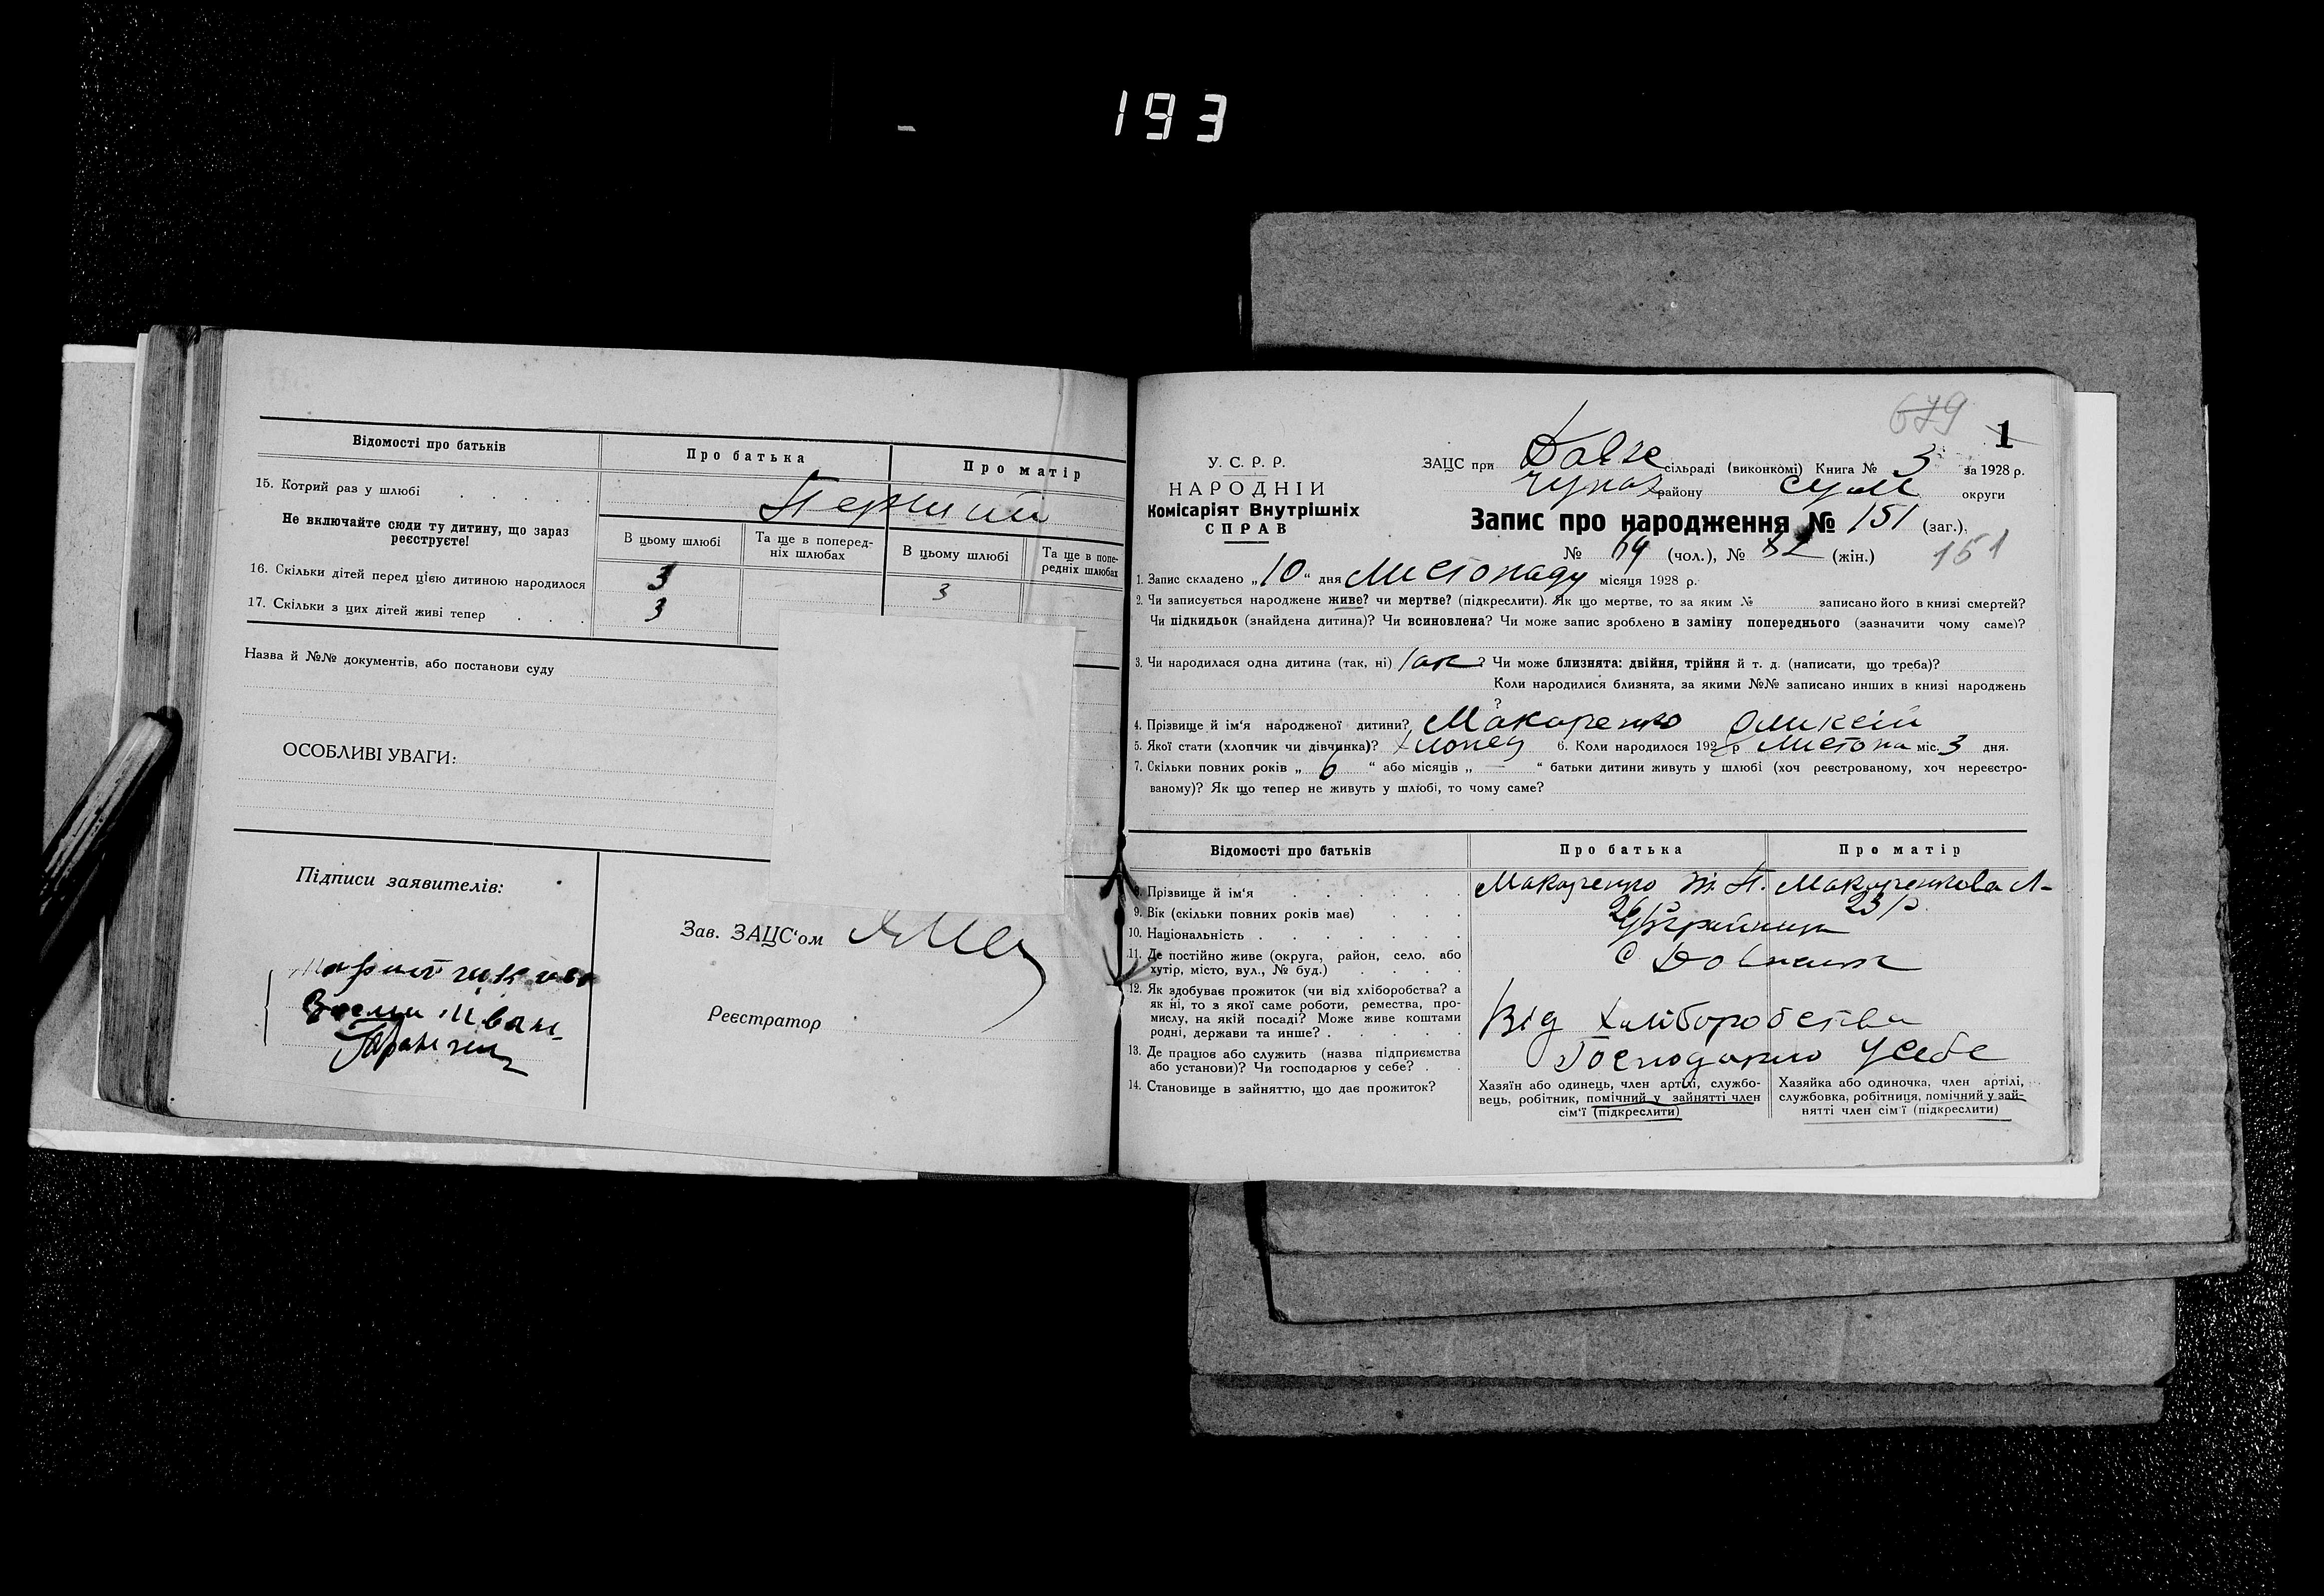 193
Відомості про батьків
Про батька
Про матір
15. Котрий раз у шлюбі
Перший
Не включайте сюди ту дитину, що зараз реєструєте!
В цьому шлюбі
Та ще в поперед-
ніх шлюбах
В цьому шлюбі
Та ще в попе-
редніх шлюбах
16. Скільки дітей перед цією дитиною народилося 3 3
17. Скільки з цих дітей живі тепер 3
Назва й №№ документів, або постанови суду
ОСОБЛИВІ УВАГИ:
Підписи заявителів:
Зав. ЗАЦС'ом
Реєстратор
679
1
У. С. Р. Р.
НАРОДНІЙ
Комісаріят Внутрішніх
СПРАВ
ЗАЦС при сільраді (виконкомі) Книга № 3 за 1928 р.
району Сум округи
Запис про народження № 151 (заг.).
№ 69 (чол.), № 82 (жін.)
151
1. Запис складено „10“ дня Листопаду місяця 1928 р.
2. Чи записується народжене живе? чи мертве? (підкреслити). Як що мертве, то за яким № записано його в книзі смертей?
Чи підкидьок (знайдена дитина)? Чи всиновлена? Чи може запис зроблено в заміну попереднього (зазначити чому саме)?
3. Чи народилася одна дитина (так, ні) Так? Чи може близнята: двійня, трійня й т. д. (написати, що треба)?
Коли народилися близнята, за якими №№ записано инших в книзі народжень
?
4. Прізвище й ім'я народженої дитини? Макаренко Оликсій
5. Якої стати (хлопчик чи дівчинка)? Хлопец 6. Коли народилося 192 р Листопа міс. 3 дня.
7. Скільки повних років „6“ або місяців „—“ батьки дитини живуть у шлюбі (хоч реєстрованому, хоч нереєстро-
ваному)? Як що тепер не живуть у шлюбі, то чому саме?
Відомості про батьків
Про батька
Про матір
8. Прізвище й ім'я Макаренко Т. П. Макаренкова Л-
9. Вік (скільки повних років має) 26 р 23 р
10. Національність
11. Де постійно живе (округа, район, село, або
хутір, місто, вул., № буд.)
С
12. Як здобуває прожиток (чи від хліборобства? а
як ні, то з якої саме роботи, ремества, про-
мислу, на якій посаді? Може живе коштами
родні, держави та инше?
Від Хліборобства
13. Де працює або служить (назва підприємства
або установи)? Чи господарює у себе?
Господарию У себе
14. Становище в зайняттю, що дає прожиток?
Хазяїн або одинець, член артілі, службо-
вець, робітник, помічний у зайнятті член
сім'ї (підкреслити)
Хазяйка або одиночка, член артілі,
службовка, робітниця, помічний у зай-
нятті член сім'ї (підкреслити)